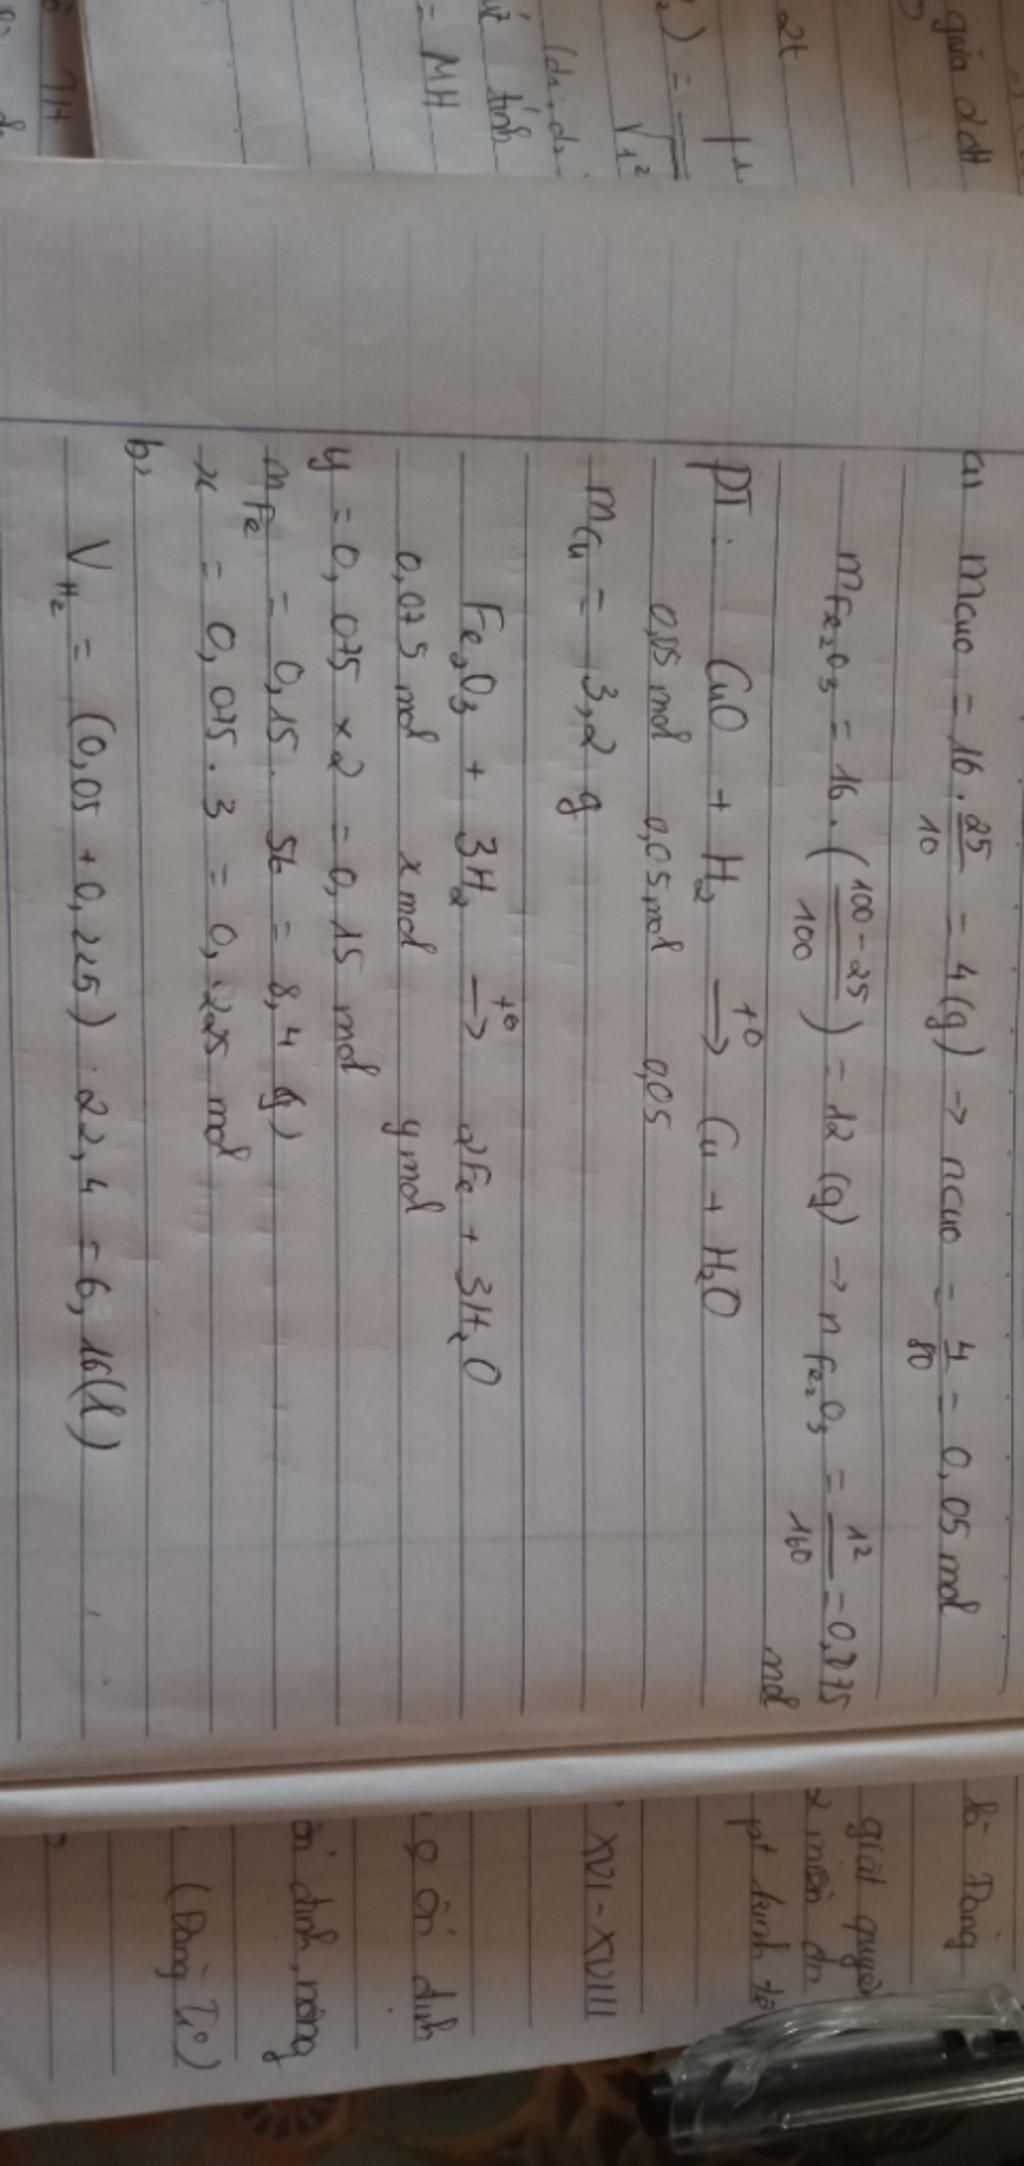 a, mCuO = 16 . 25/10 = 4 (g) → nCuO = 4/80 = 0,05 mol
mFe₂O₃ = 16 . (100 - 25/100) = 12 (g) → nFe₂O₃ = 12/160 = 0,075 mol
PT : CuO + H₂ →t° Cu + H₂O
0,05 mol 0,05 mol 0,05
mCu = 3,2 g
Fe₂O₃ + 3H₂ →t° 2Fe + 3H₂O
0,075 mol x mol y mol
y = 0,075 × 2 = 0,15 mol
mFe = 0,15 . 56 = 8,4 g)
x = 0,075 . 3 = 0,225 mol
b,
V H₂ = (0,05 + 0,225) . 22,4 = 6,16 (l)
giữa 2 đt
2t
) = √1²
(d₁; d₂
tính
= MH
TH
là Đàng
giải quyết
2 miền đn
pt kinh tế
XVI - XVIII
ổn định
định, nông
(Đàng T°)